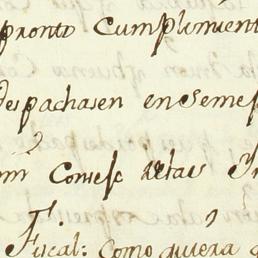 pronto Cumplimient
despachasen en semej
Consejo estas
Fiscal: Como quiera q